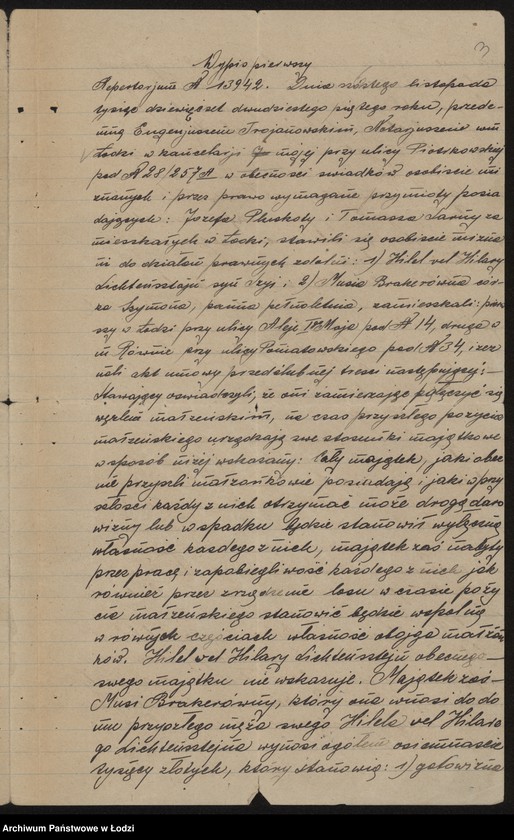 3
Wypis pierwszy
Repertorjum № 13942. Dnia szóstego listopada
tysiąc dziewięćset dwudziestego piątego roku, przede-
mną Eugenjuszem Trojanowskim, Notarjuszem w m.
Łodzi w kancelarji mojej przy ulicy Piotrkowskiej
pod № 28/257A w obecności świadków osobiście mi
znanych i przez prawo wymagane przymioty posia
dających: Józefa Pluskoty i Tomasza Jarny za
mieszkałych w Łodzi, stawili się osobiście nieznani
mi do działań prawnych zdolni: 1) Hilel vel Hilary
Lichtensztajn syn Icyi; 2) Musia Brakerówna cór-
ka Szymona, panna pełnoletnia, zamieszkali: pierw
szy w Łodzi przy ulicy Aleje I Maja pod № 14, druga w
m. Równie przy ulicy Poniatowskiego pod № 34, i zez
nali akt umowy przedślubnej treści następującej:
Stawający oświadczyli, że oni zamierzając połączyć się
węzłem małżeńskim, na czas przyszłego pożycia
małżeńskiego urządzają swe stosunki majątkowe
w sposób niżej wskazany: Cały majątek, jaki obec
nie przyszli małżonkowie posiadają i jaki w przy
szłości każdy z nich otrzymać może drogą daro
wizny lub w spadku będzie stanowił wyłączną
własność każdego z nich, majątek zaś nabyty
przez pracę i zapobiegliwość każdego z nich jak
również przez zrządzenie losu w czasie poży
cia małżeńskiego stanowić będzie wspólną
w równych częściach własność obojga małżon
ków. Hilel vel Hilary Lichtensztejn obecnego
swego majątku nie wskazuje. Majątek zaś
Musi Brakerówny, który ona wnosi do do
mu przyszłego męża swego Hilela vel Hilare
go Lichtensztejna wynosi ogółem osiemnaście
tysięcy złotych, który stanowią: 1) gotowizna
Archiwum Państwowe w Łodzi